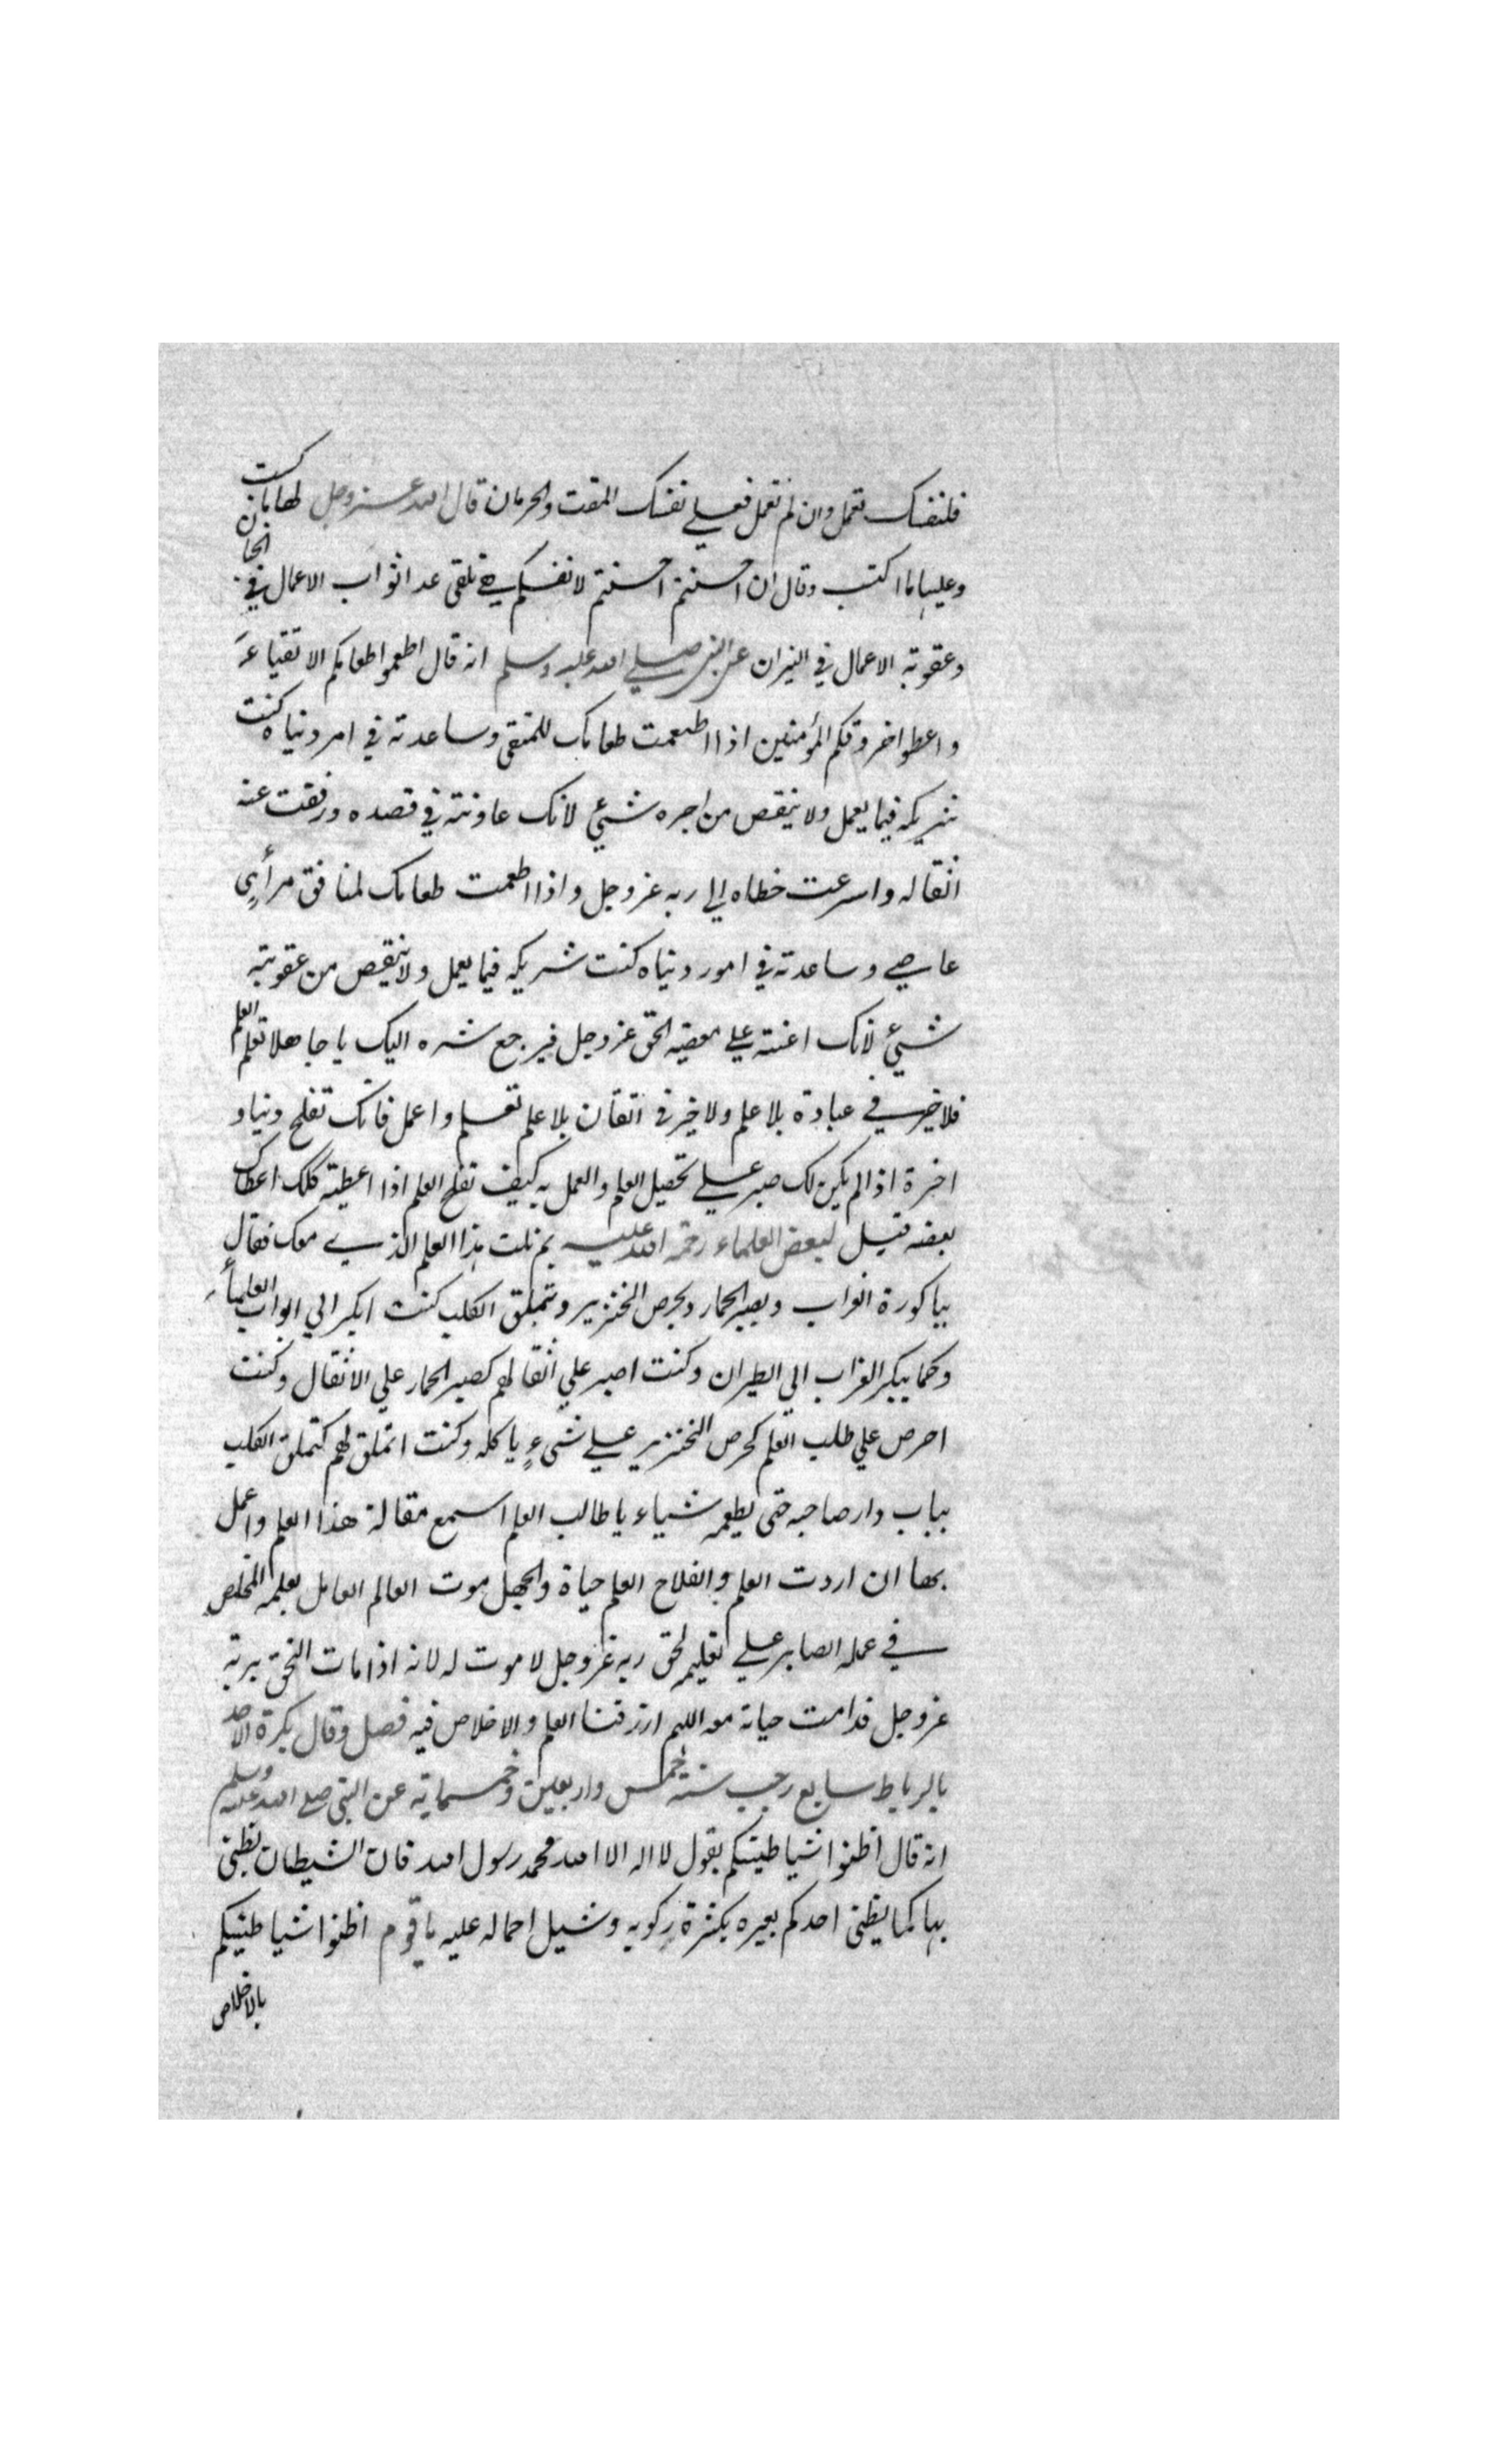 فلنفسك تعمل وان لم تعمل فعلي نفسك المقت والحرمان قال الله عز وجل لها ما كسبت
وعليها ما اكتسبت وقال ان احسنتم احسنتم لانفسكم هي تلقي غدا ثواب الاعمال في الجنان
وعقوبة الاعمال في النيران عن النبي صلي الله عليه وسلم انه قال اطعموا طعامكم الاتقياء
واعطوا خروقكم المؤمنين اذا اطعمت طعامك للمتقي وساعدته في امر دنياه كنت
شريكه فيما يعمل ولا ينقص من اجره شيئ لانك عاونته في قصده ورفعت عنه
اثقاله واسرعت خطاه الي ربه عز وجل واذا اطعمت طعامك لمنافق مرأيٍ
عاصي وساعدته في امور دنياه كنت شريكه فيما يعمل ولا ينقص من عقوبته
شيئ لانك اعنته علي معصية الحق عز وجل فيرجع شره اليك يا جاهلا تعلم العلم
فلا خير في عبادة بلا علم ولا خير في اتقان بلا علم تعلم واعمل فانك تفلح دنيا و
اخرة اذا لم يكن لك صبر علي تحصيل العلم والعمل به كيف تفلح العلم اذا اعطيته كلك اعطاك
بعضه قيل لبعض العلماء رحمة الله عليه بم نلت هذا العلم الذي معك فقال
بباكورة الغراب وبصبر الحمار وبحرص الخنزير وبتملق الكلب كنت ابكر الي ابواب العلماء
وكما يبكر الغراب الي الطيران وكنت اصبر علي اثقالهم كصبر الحمار علي الاثقال وكنت
احرص علي طلب العلم كحرص الخنزير علي شيءٍ ياكله وكنت اتملق لهم كتملق الكلب
بباب دار صاحبه حتى يطعمه شياء يا طالب العلم اسمع مقالة هذا العلم واعمل
بها ان اردت العلم والفلاح العلم حياة والجهل موت العالم العامل بعلمه المخلص
في عمله الصابر علي تعليمه لحق ربه عز وجل لا موت له لانه اذا مات التحق بربه
عز وجل فدامت حياته معه اللهم ارزقنا العلم والاخلاص فيه فصل وقال بكرة الاحد
بالرباط سابع رجب سنة خمس واربعين وخمسماية عن النبي صلي الله عليه وسلم
انه قال اظنوا شياطينكم بقول لا اله الا الله محمد رسول الله فان الشيطان يظني
بها كما يظني احدكم بعيره بكثرة ركوبه وشيل احماله عليه يا قوم اظنوا شياطينكم
بالاخلاص